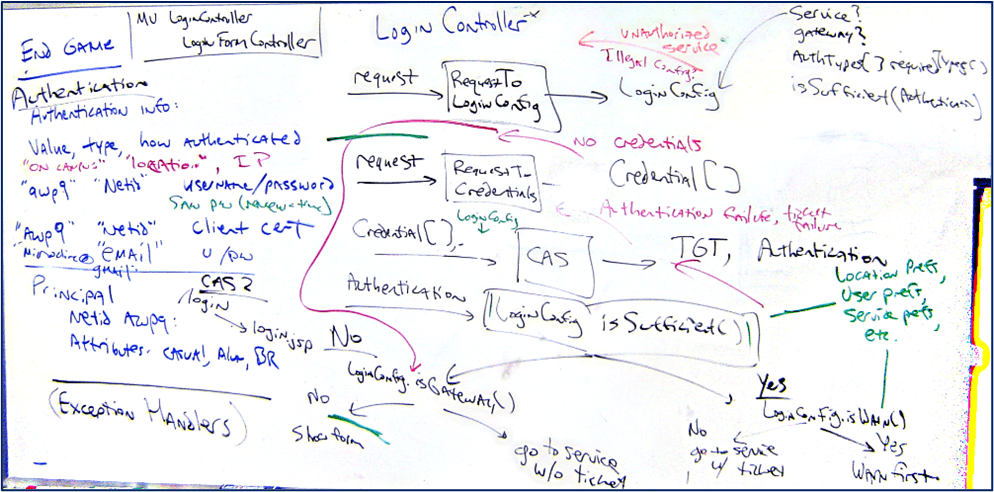 END GAME
MV LoginController
LoginFormController
Login Controller
Service?
gateway?
AuthTypes[] required
isSufficient(Authentication)
UNAUTHORIZED
SERVICE
Illegal Config?
request
RequestTo
LoginConfig
LoginConfig
Authentication
Authentication info:
Value, type, how authenticated
"ON CAMPUS" "location", IP
"awp9" "Netid" username/password
"Awp9" "Netid" Client cert
"EMAIL" U/pw
gmail
NO CREDENTIALS
request
RequestTo
Credentials
Credential[]
Authentication failure, ticket
failure
LoginConfig
Credential[],
CAS
TGT, Authentication
Location prefs,
User prefs,
Service prefs,
etc.
Authentication
LoginConfig isSufficient()
Principal
Netid Awp9:
Attributes. CASUAL, Alum, BR
CAS 2
/login
login.jsp
No
LoginConfig.isGateway()
No
Show form
go to service
w/o ticket
Yes
LoginConfig.isWARN()
No
go to service
w/ ticket
Yes
WARN first
(Exception Handlers)